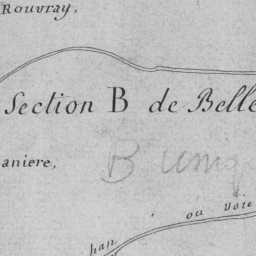 Rouvray,
Section B de Belle
aniere,
B uniq
ou voie
han